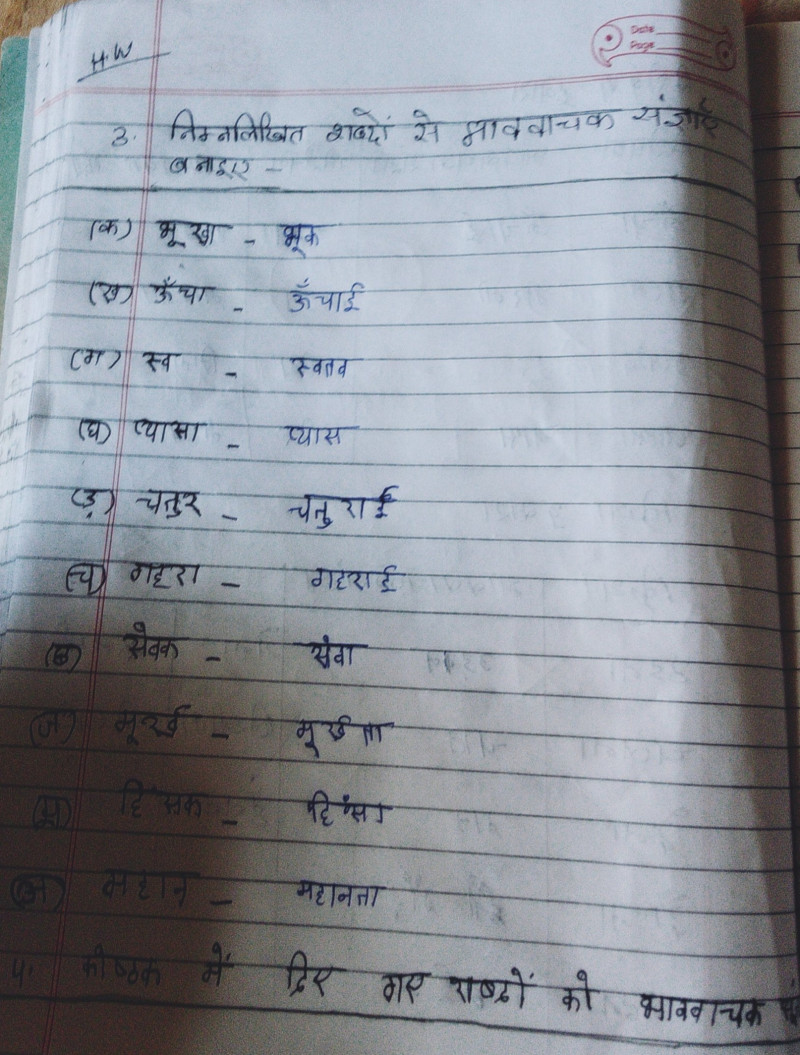 H.W
Date
Page
3. निम्नलिखित शब्दों से भाववाचक संज्ञाएँ
बनाइए -
(क) भूखा - भूक
(ख) ऊँचा - ऊँचाई
(ग) स्व - स्वतव
(घ) प्यासा - प्यास
(ङ) चतुर - चतुराई
(च) गहरा - गहराई
(छ) सेवक - सेवा
(ज) मूर्ख - मूर्खता
(झ) हिंसक - हिंसा
(ञ) महान - महानता
4. कोष्ठक में दिए गए शब्दों को भाववाचक